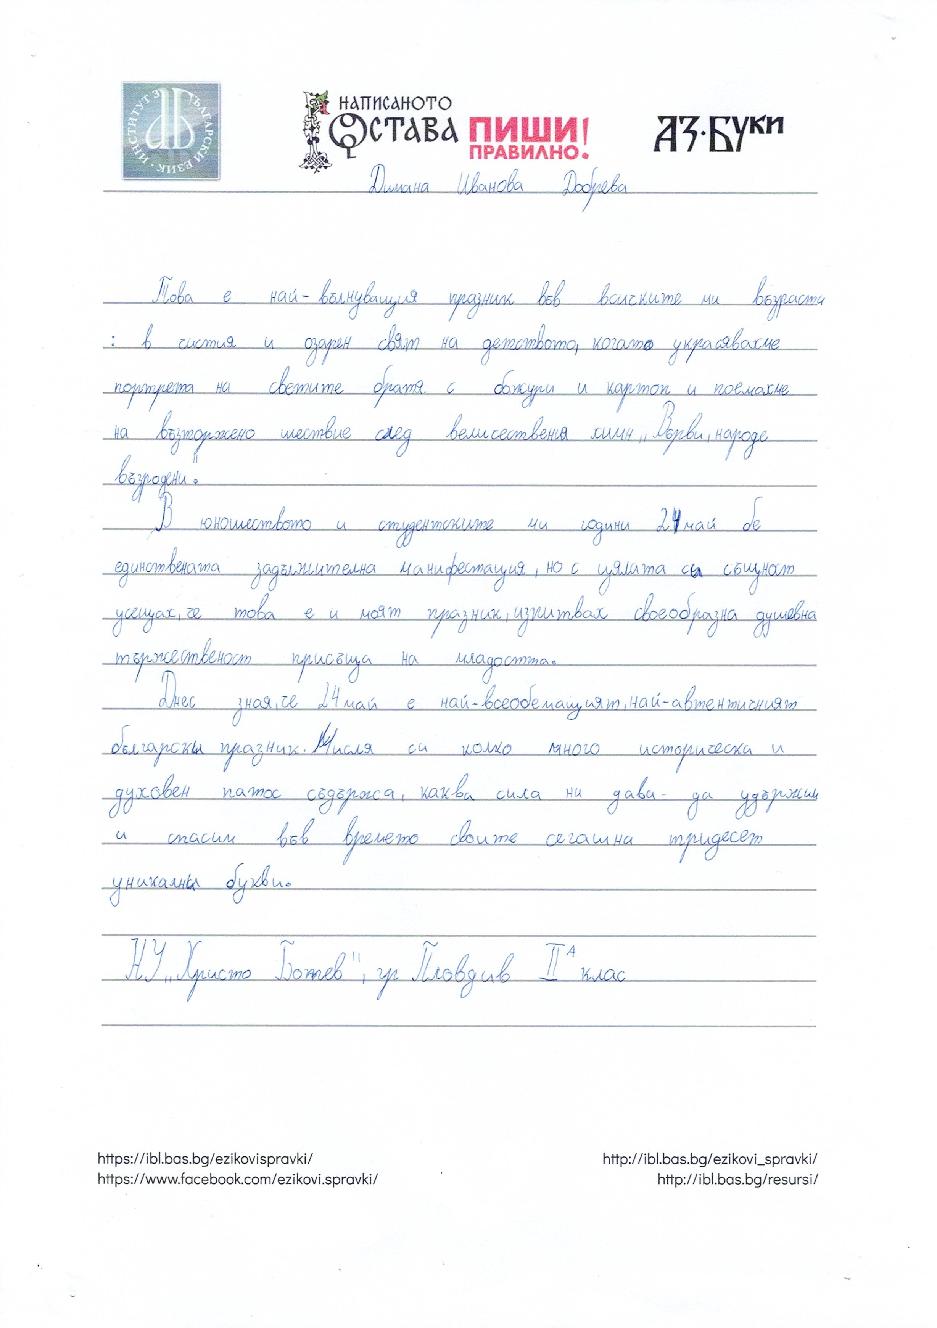 ИНСТИТУТ ЗА БЪЛГАРСКИ ЕЗИК
НАПИСАНОТО
ОСТАВА ПИШИ!
ПРАВИЛНО!
АЗ·БУКИ
Димана Иванова Добрева
Това е най-вълнуващия празник във всичките ми възрасти
: в чистия и озарен свят на детството, когато украсявахме
портрета на светите братя с божури и картон и поемахме
на възторжено шествие след величествения химн „Върви, народе
възродени".
В юношеството и студентските ми години 24 май бе
единствената задължителна манифестация, но с цялата си същност
усещах, че това е и моят празник, изпитвах своеобразна душевна
тържественост присъща на младостта.
Днес зная, че 24 май е най-всеобемащият, най-автентичният
български празник. Мисля си колко много историческа и
духовен патос съдържа, каква сила ни дава- да удържим
и спасим във времето своите сегашна тридесет
уникални букви.
НУ „Христо Ботев", гр Пловдив II А клас
https://ibl.bas.bg/ezikovispravki/ http://ibl.bas.bg/ezikovi_spravki/
https://www.facebook.com/ezikovi.spravki/ http://ibl.bas.bg/resursi/